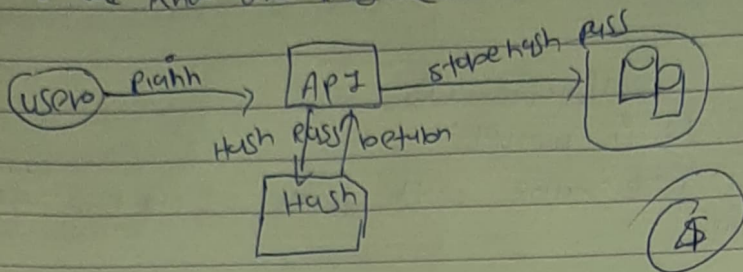 user
plain
API
store hash pass
Hash pass
return
Hash